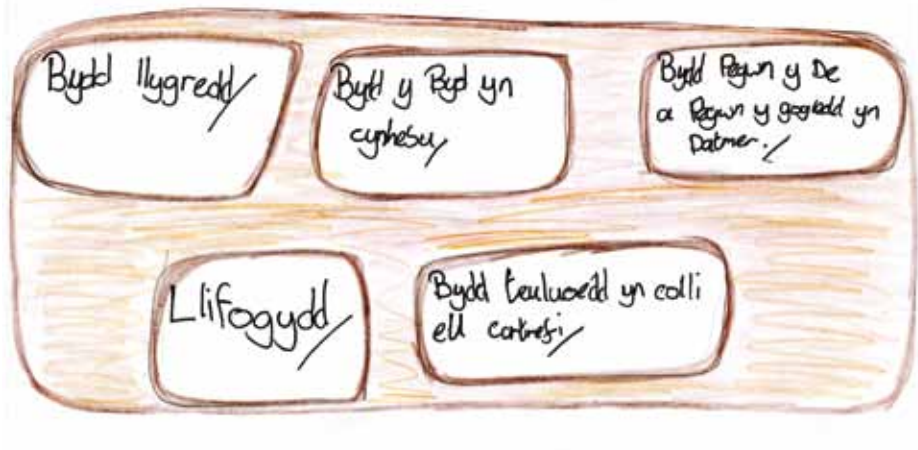 Bydd llygredd/
Bydd y Byd yn
cynhesu/
Bydd Pegwn y De
a Pegwn y gogledd yn
Datmer./
Llifogydd/
Bydd teuluoedd yn colli
eu cartrefi/